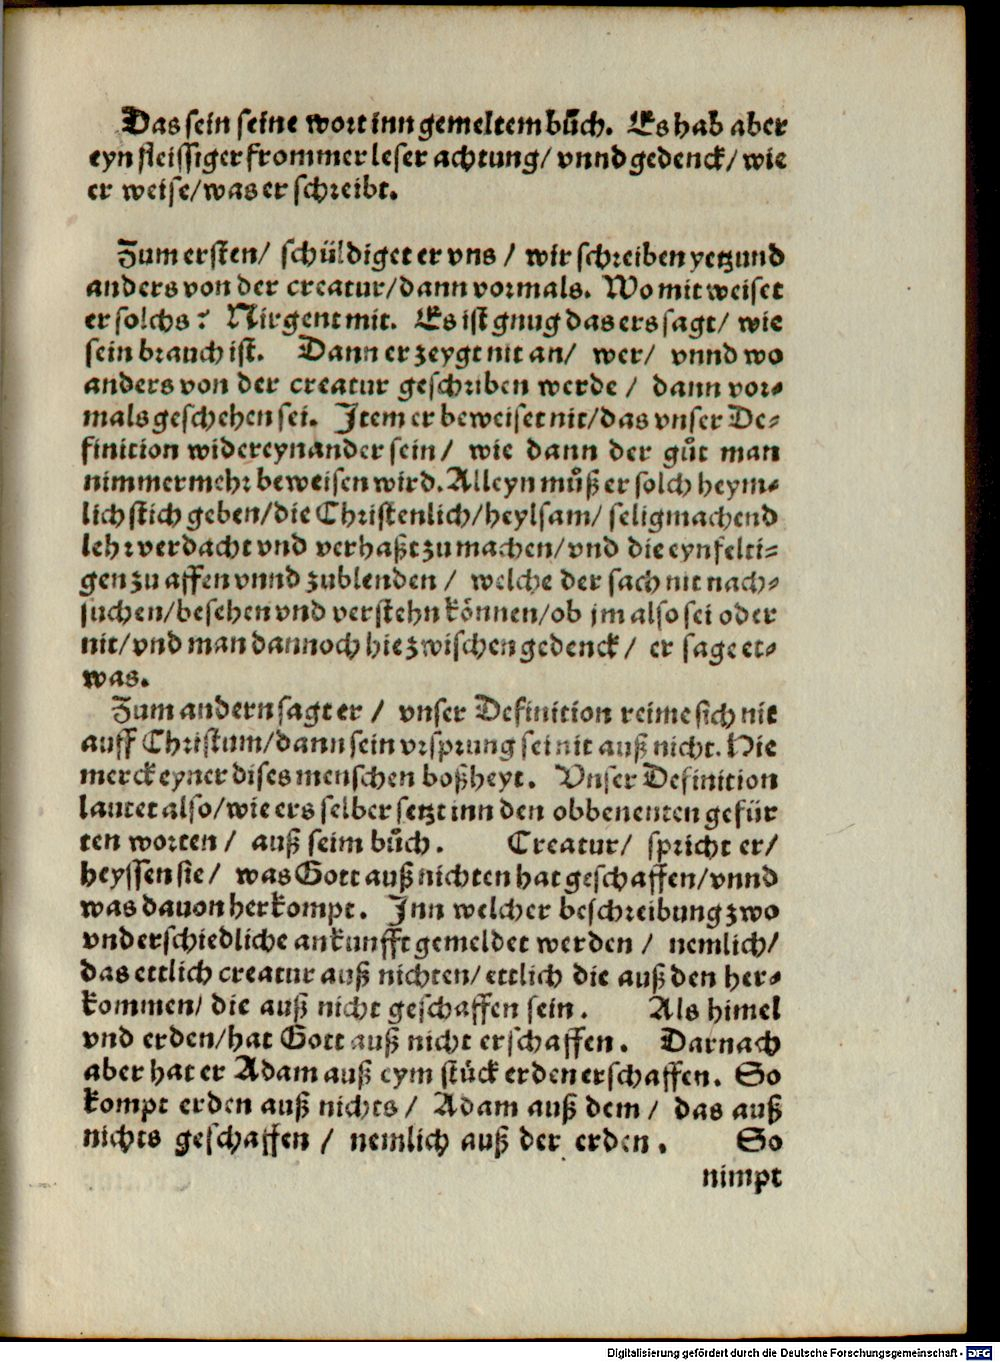 Das sein seine wort inn gemeltem bůch. Es hab aber
eyn fleissiger frommer leser achtung/ vnnd gedenck/ wie
er weise/ was er schreibt.
Zum ersten/ schüldiget er vns / wir schreiben yetzund
anders von der creatur/ dann vormals. Womit weiset
er solchs? Nirgent mit. Es ist gnug das ers sagt/ wie
sein brauch ist. Dann er zeygt nit an/ wer/ vnnd wo
anders von der creatur geschriben werde / dann vor⸗
mals geschehen sei. Item er beweiset nit/ das vnser De⸗
finition widereynander sein/ wie dann der gůt man
nimmermehr beweisen wird. Alleyn můß er solch heym⸗
lich stich geben/ die Christenlich/ heylsam/ seligmachend
lehr verdacht vnd verhaßt zu machen/ vnd die eynfelti⸗
gen zu affen vnnd zublenden / welche der sach nit nach⸗
suchen/ besehen vnd verstehn können/ ob jm also sei oder
nit/ vnd man dannoch hiezwischen gedenck/ er sage et⸗
was.
Zum andern sagt er / vnser Definition reime sich nit
auff Christum/ dann sein vrsprung sei nit auß nicht. Hie
merck eyner dises menschen boßheyt. Vnser Definition
lautet also/ wie ers selber setzt inn den obbenenten gefür
ten worten / auß seim bůch. Creatur/ spricht er/
heyssen sie/ was Gott auß nichten hat geschaffen/ vnnd
was dauon herkompt. Inn welcher beschreibung zwo
vnderschiedliche ankunfft gemeldet werden / nemlich/
das ettlich creatur auß nichten/ ettlich die auß den her⸗
kommen/ die auß nicht geschaffen sein. Als himel
vnd erden/ hat Gott auß nicht erschaffen. Darnach
aber hat er Adam auß eym stück erden erschaffen. So
kompt erden auß nichts/ Adam auß dem/ das auß
nichts geschaffen / nemlich auß der erden. So
nimpt
Digitalisierung gefördert durch die Deutsche Forschungsgemeinschaft - DFG